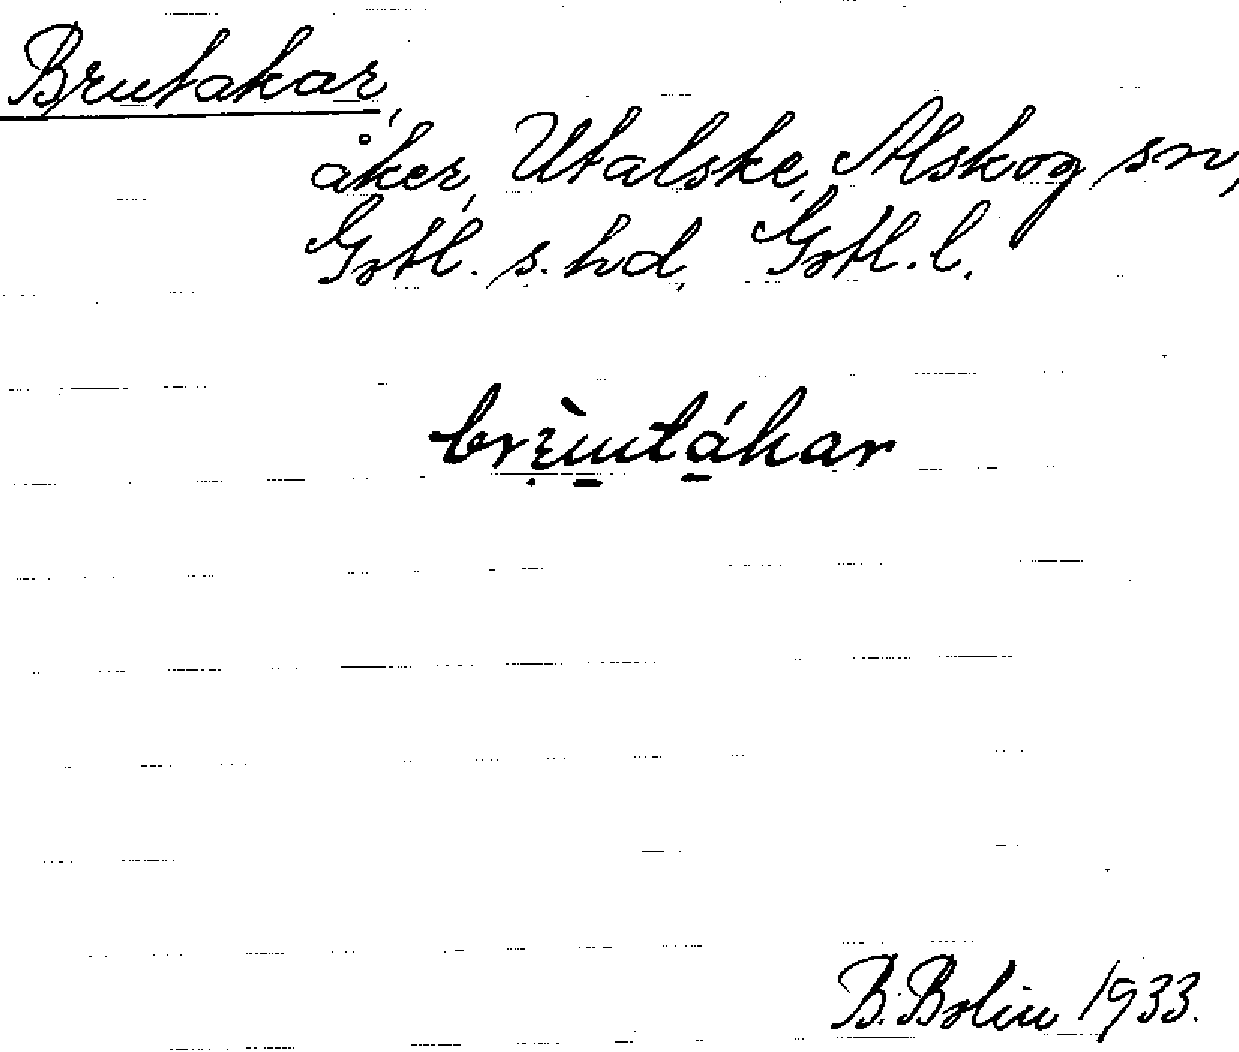 Brutakar,
åker, Utalske, Alskog sn,
Gotl. s. hd, Gotl. l.
brɛ̀utákar
B. Bolin 1933.